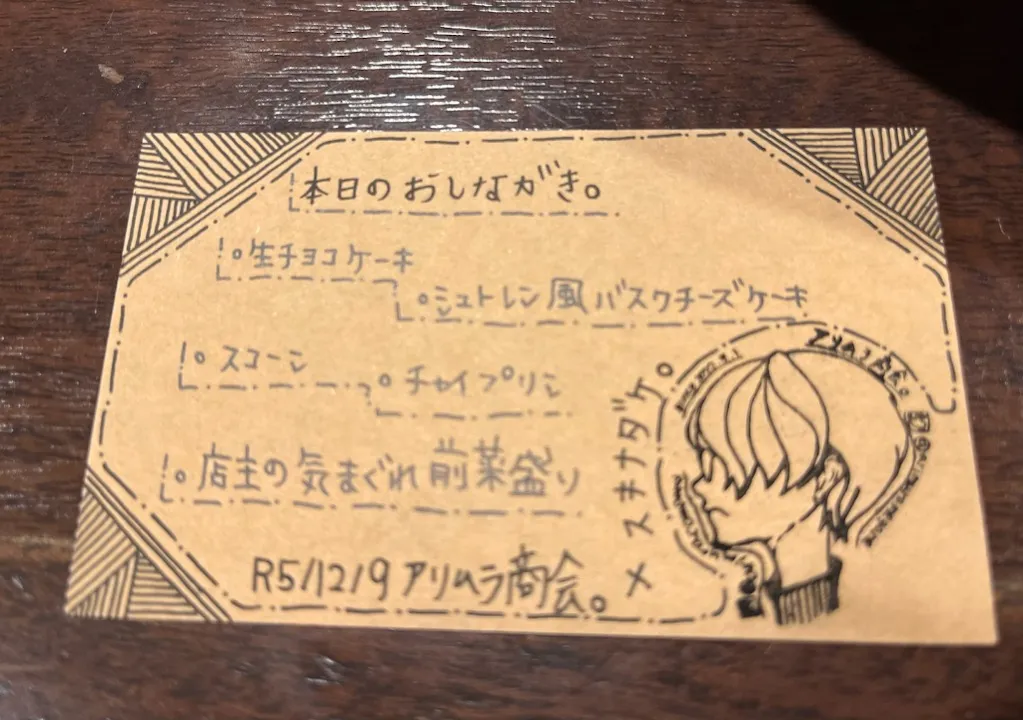 本日のおしながき。
○生チョコケーキ
○シュトレン風バスクチーズケーキ
○スコーン
○チャイプリン
○店主の気まぐれ前菜盛り
R5/12/9アリムラ商会。×スキナダケ。